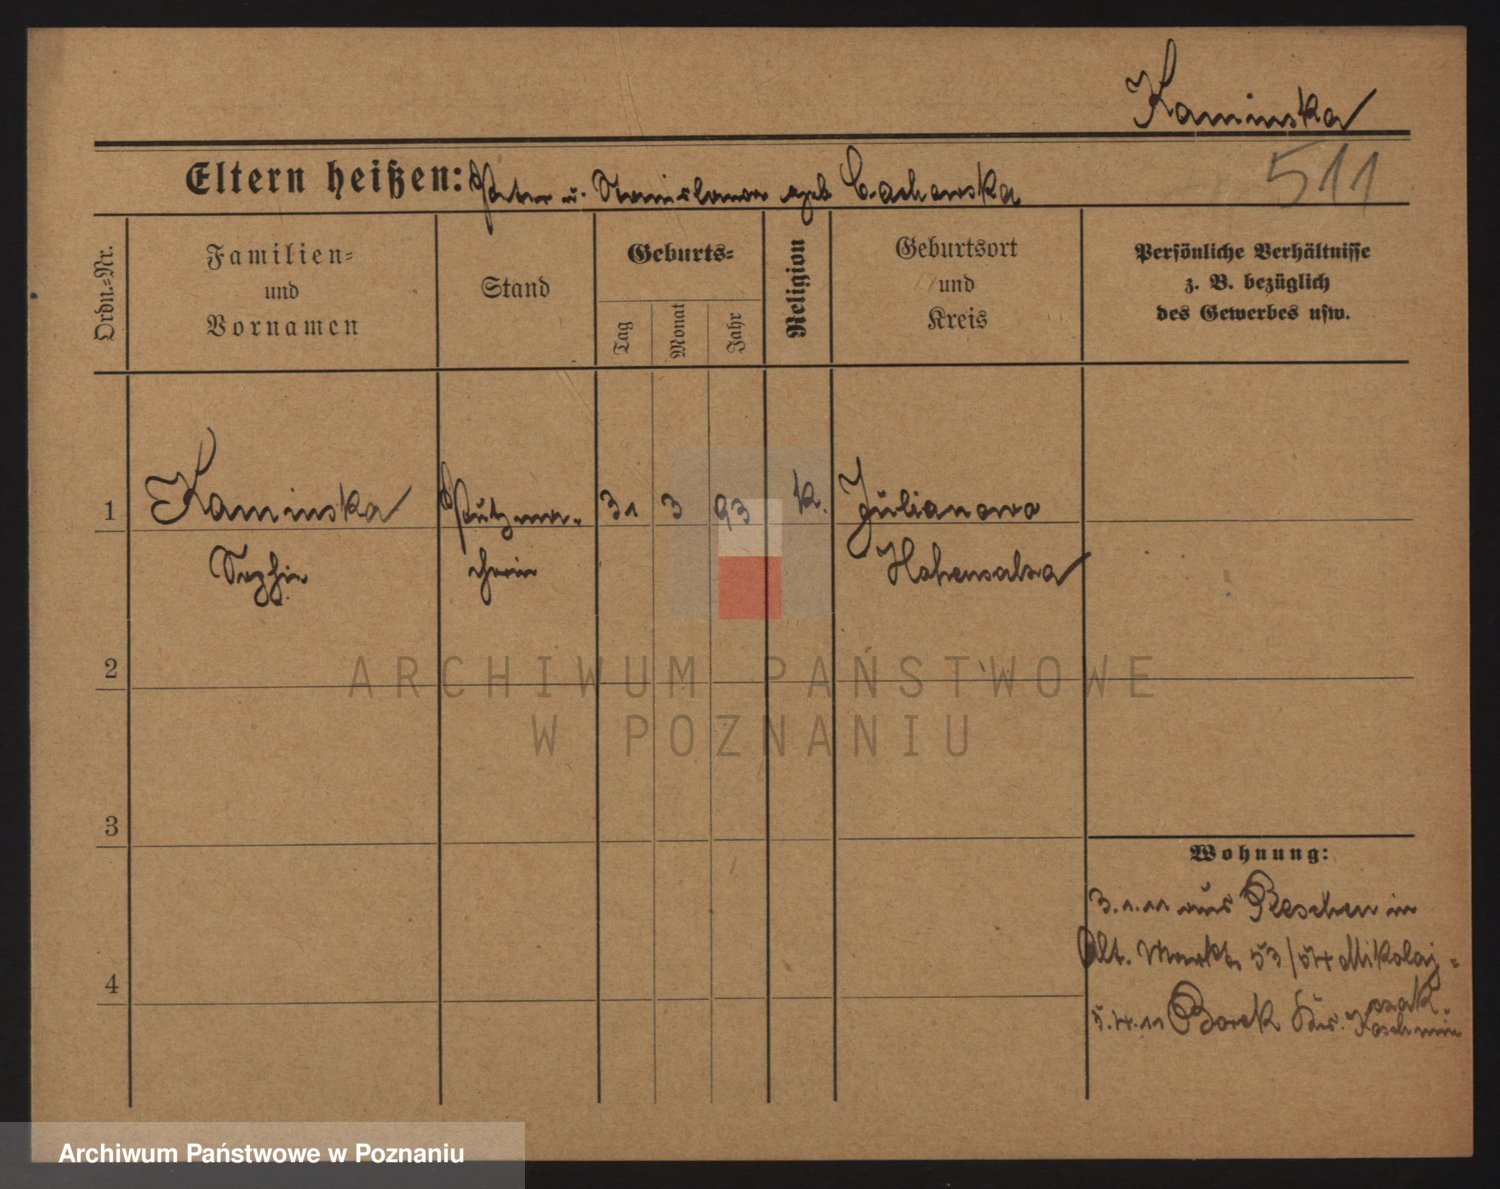 Kaminska
511
Eltern heißen: Peter u. Stanislawa geb Cachowska
Ordn.=Nr.
Familien=
und
Vornamen
Stand
Geburts=
Tag
Monat
Jahr
Religion
Geburtsort
und
Kreis
Persönliche Verhältnisse
z. B. bezüglich
des Gewerbes usw.
1
Kaminska
Sophie
Putzma-
cherin
31
3
93
k.
Julianowo
Hohensalza
2
3
4
Wohnung:
3.1.11 aus Pleschen in
Alt. Markt 53/54 Mikolaj-
czak.
5.4.11 Borek Kr. Koschmin
ARCHIWUM PAŃSTWOWE
W POZNANIU
Archiwum Państwowe w Poznaniu